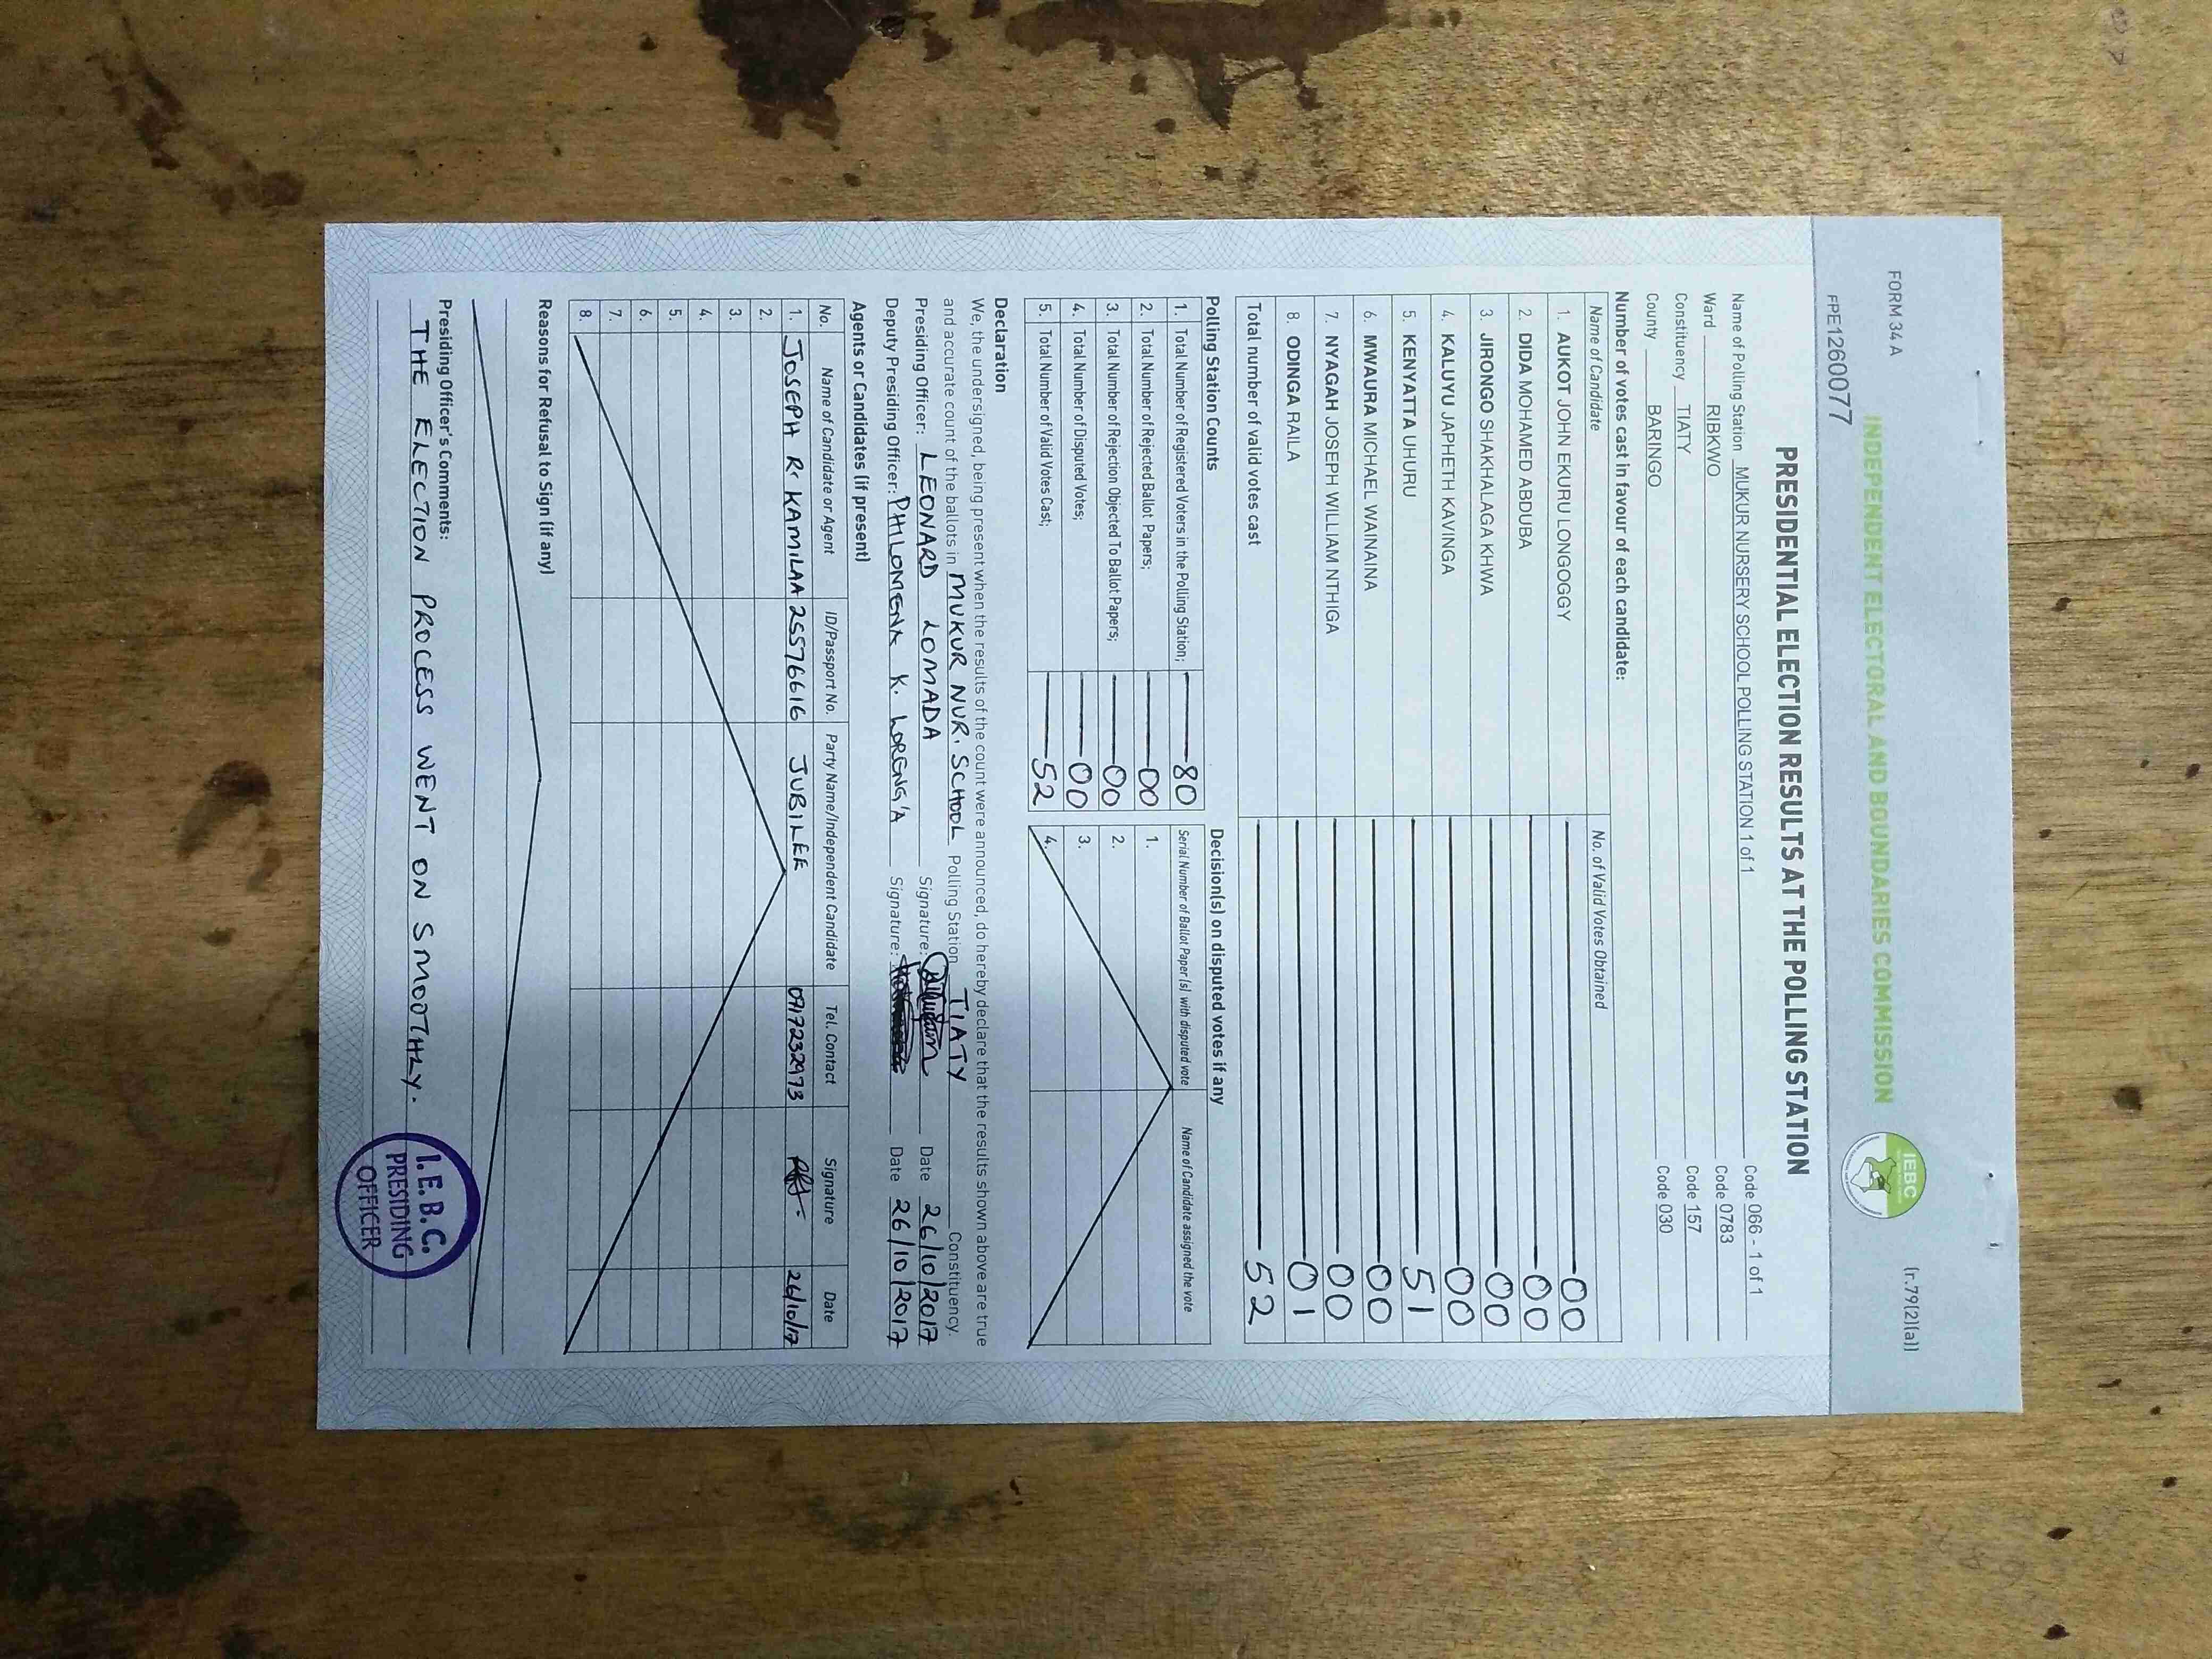 FORM 34 A
(r.79(2)(a))
INDEPENDENT ELECTORAL AND BOUNDARIES COMMISSION
IEBC
FPE1260077
PRESIDENTIAL ELECTION RESULTS AT THE POLLING STATION
Name of Polling Station MUKUR NURSERY SCHOOL POLLING STATION 1 of 1 Code 066 - 1 of 1
Ward RIBKWO Code 0783
Constituency TIATY Code 157
County BARINGO Code 030
Number of votes cast in favour of each candidate:
Name of Candidate No. of Valid Votes Obtained
1. AUKOT JOHN EKURU LONGOGGY 00
2. DIDA MOHAMED ABDUBA 00
3. JIRONGO SHAKHALAGA KHWA 00
4. KALUYU JAPHETH KAVINGA 00
5. KENYATTA UHURU 51
6. MWAURA MICHAEL WAINAINA 00
7. NYAGAH JOSEPH WILLIAM NTHIGA 00
8. ODINGA RAILA 01
Total number of valid votes cast 52
Polling Station Counts
1. Total Number of Registered Voters in the Polling Station; 80
2. Total Number of Rejected Ballot Papers; 00
3. Total Number of Rejection Objected To Ballot Papers; 00
4. Total Number of Disputed Votes; 00
5. Total Number of Valid Votes Cast; 52
Decision(s) on disputed votes if any
Serial Number of Ballot Paper(s) with disputed vote Name of Candidate assigned the vote
1.
2.
3.
4.
Declaration
We, the undersigned, being present when the results of the count were announced, do hereby declare that the results shown above are true
and accurate count of the ballots in MUKUR NUR. SCHOOL Polling Station TIATY Constituency.
Presiding Officer: LEONARD LOMADA Signature: Date 26/10/2017
Deputy Presiding Officer: PHILOMENA K. LORENG'A Signature: Date 26/10/2017
Agents or Candidates (if present)
No. Name of Candidate or Agent ID/Passport No. Party Name/Independent Candidate Tel. Contact Signature Date
1. JOSEPH R. KAMILAA 25576616 JUBILEE 0717232973 26/10/17
2.
3.
4.
5.
6.
7.
8.
Reasons for Refusal to Sign (if any)
Presiding Officer's Comments:
THE ELECTION PROCESS WENT ON SMOOTHLY.
I.E.B.C.
PRESIDING
OFFICER